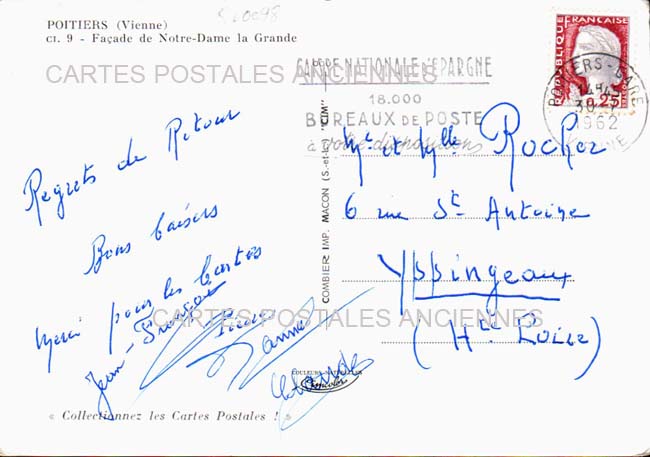 POITIERS (Vienne)
Cl. 9 - Façade de Notre-Dame la Grande
CARTES POSTALES ANCIENNES
Regrets de Retour
Bons baisers
Merci pour les Cartes
Jean-François
Pierre
Claude
« Collectionnez les Cartes Postales ! »
COMBIER IMP. MACON (S-et-L) "CIM"
REPUBLIQUE FRANÇAISE
0,25
CAISSE NATIONALE D'EPARGNE
18.000
BUREAUX DE POSTE
à votre disposition
POITIERS-GARE
1962
VIENNE
Mr et Mlle Rocher
6 rue St Antoine
Yssingeaux
(Hte Loire)
CARTES POSTALES ANCIENNES